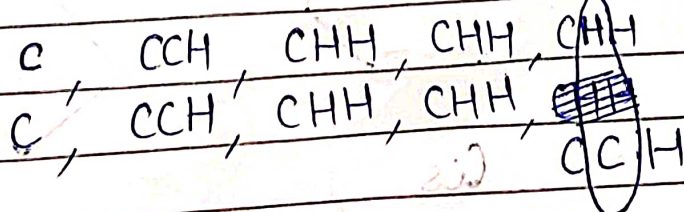 C , CCH , CHH , CHH , CHH
C , CCH , CHH , CHH ,
CCH